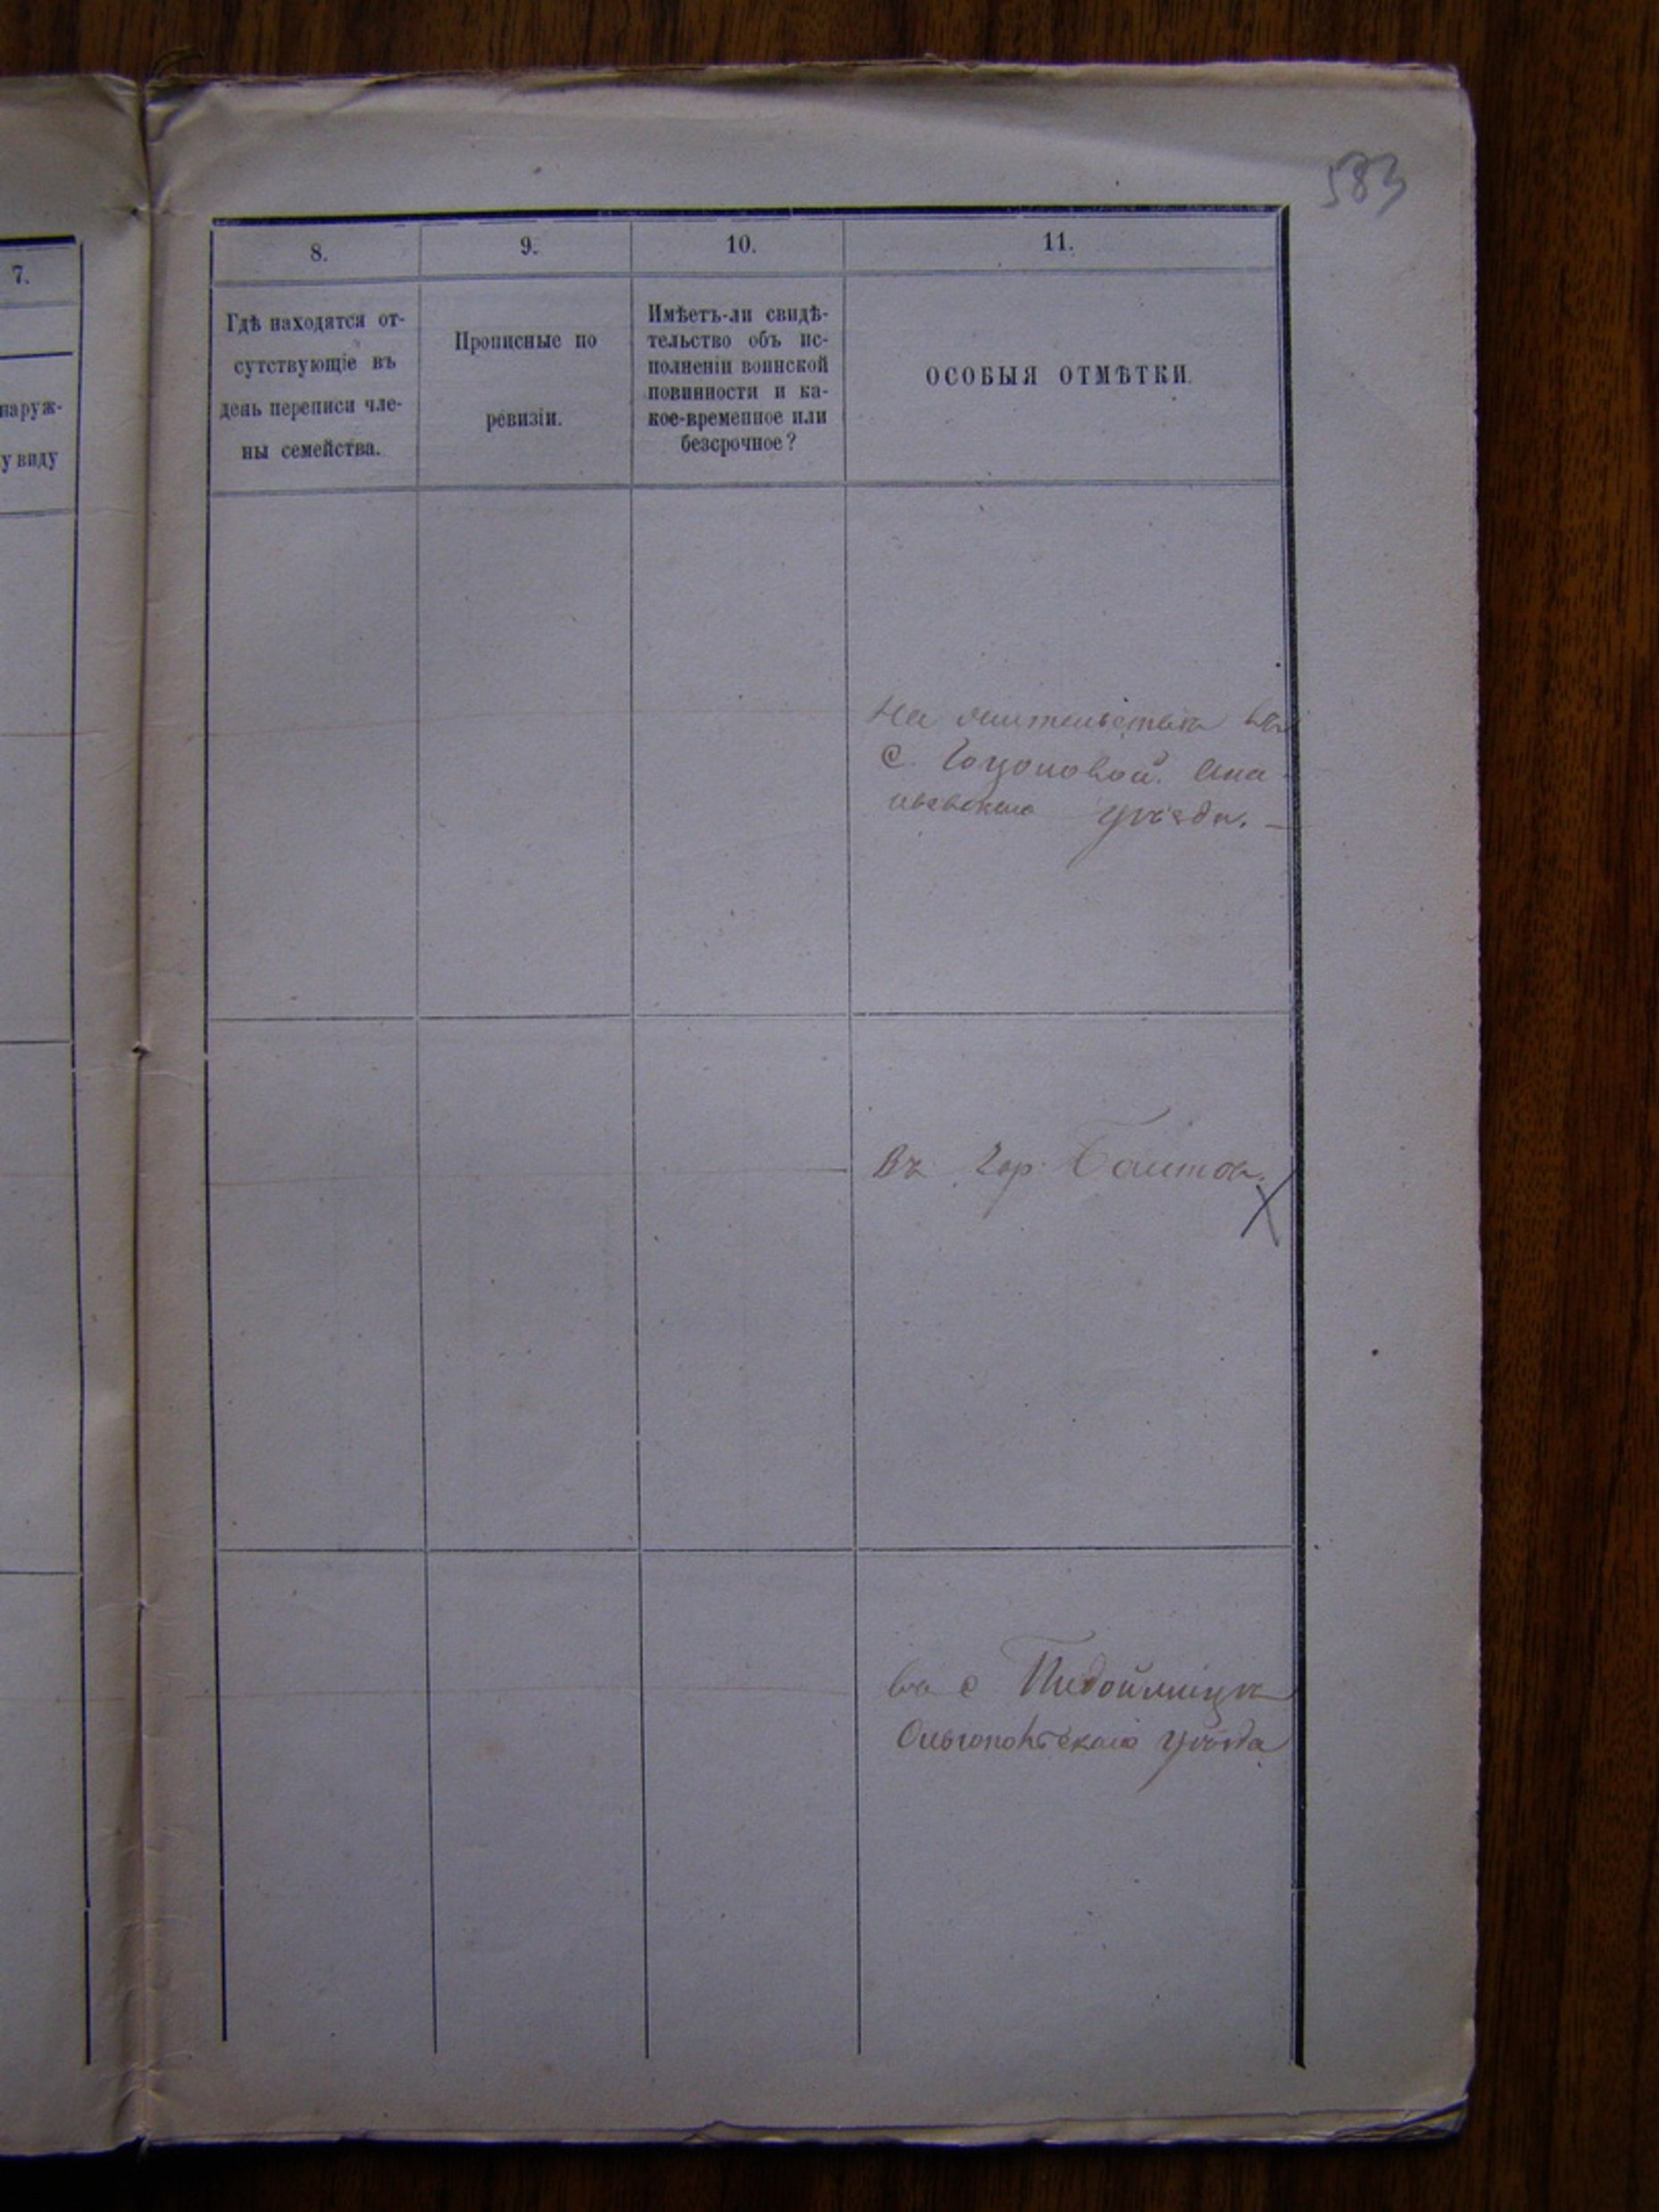 583
7.
наруж-
у виду
8.
9.
10.
11.
Гдѣ находятся от-
сутствующіе въ
день переписи чле-
ны семейства.
Прописные по
ревизіи.
Имѣетъ-ли свидѣ-
тельство объ ис-
полненіи воинской
повинности и ка-
кое-временное или
безсрочное?
ОСОБЫЯ ОТМѢТКИ.
На жительствѣ въ
С. Гоцоновой. Ана-
ньевскаго уѣзда. —
Въ гор:
въ с Пидоймицѣ
Ольгопольскаго уѣзда